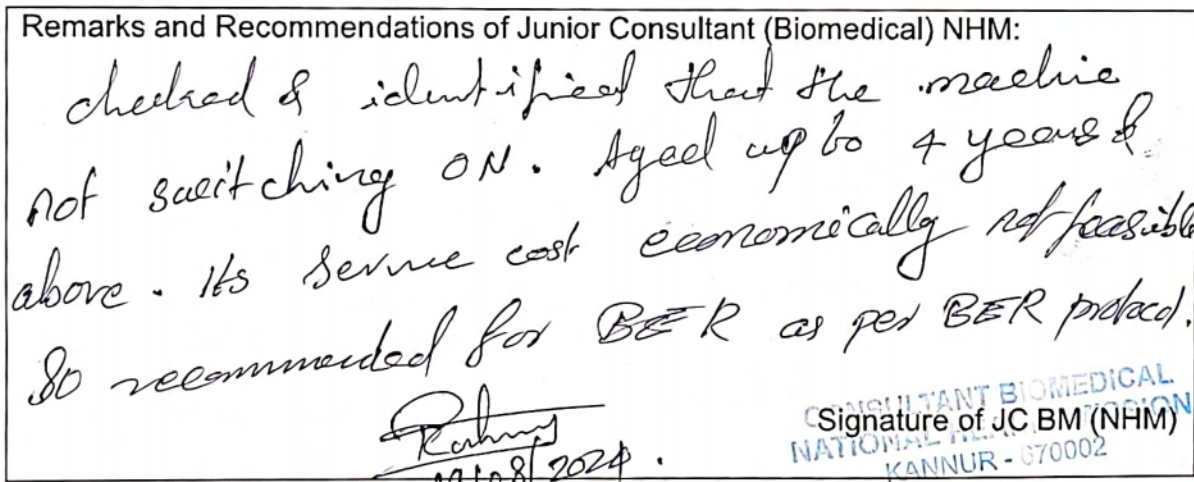 Remarks and Recommendations of Junior Consultant (Biomedical) NHM:
checked & identified that the machine
not switching ON. Aged up to 4 years &
above. Its service cost economically not feasible
So recommended for BER as per BER protocol.
CONSULTANT BIOMEDICAL
Signature of JC BM (NHM)
NATIONAL HEALTH MISSION
KANNUR - 670002
08/2024.